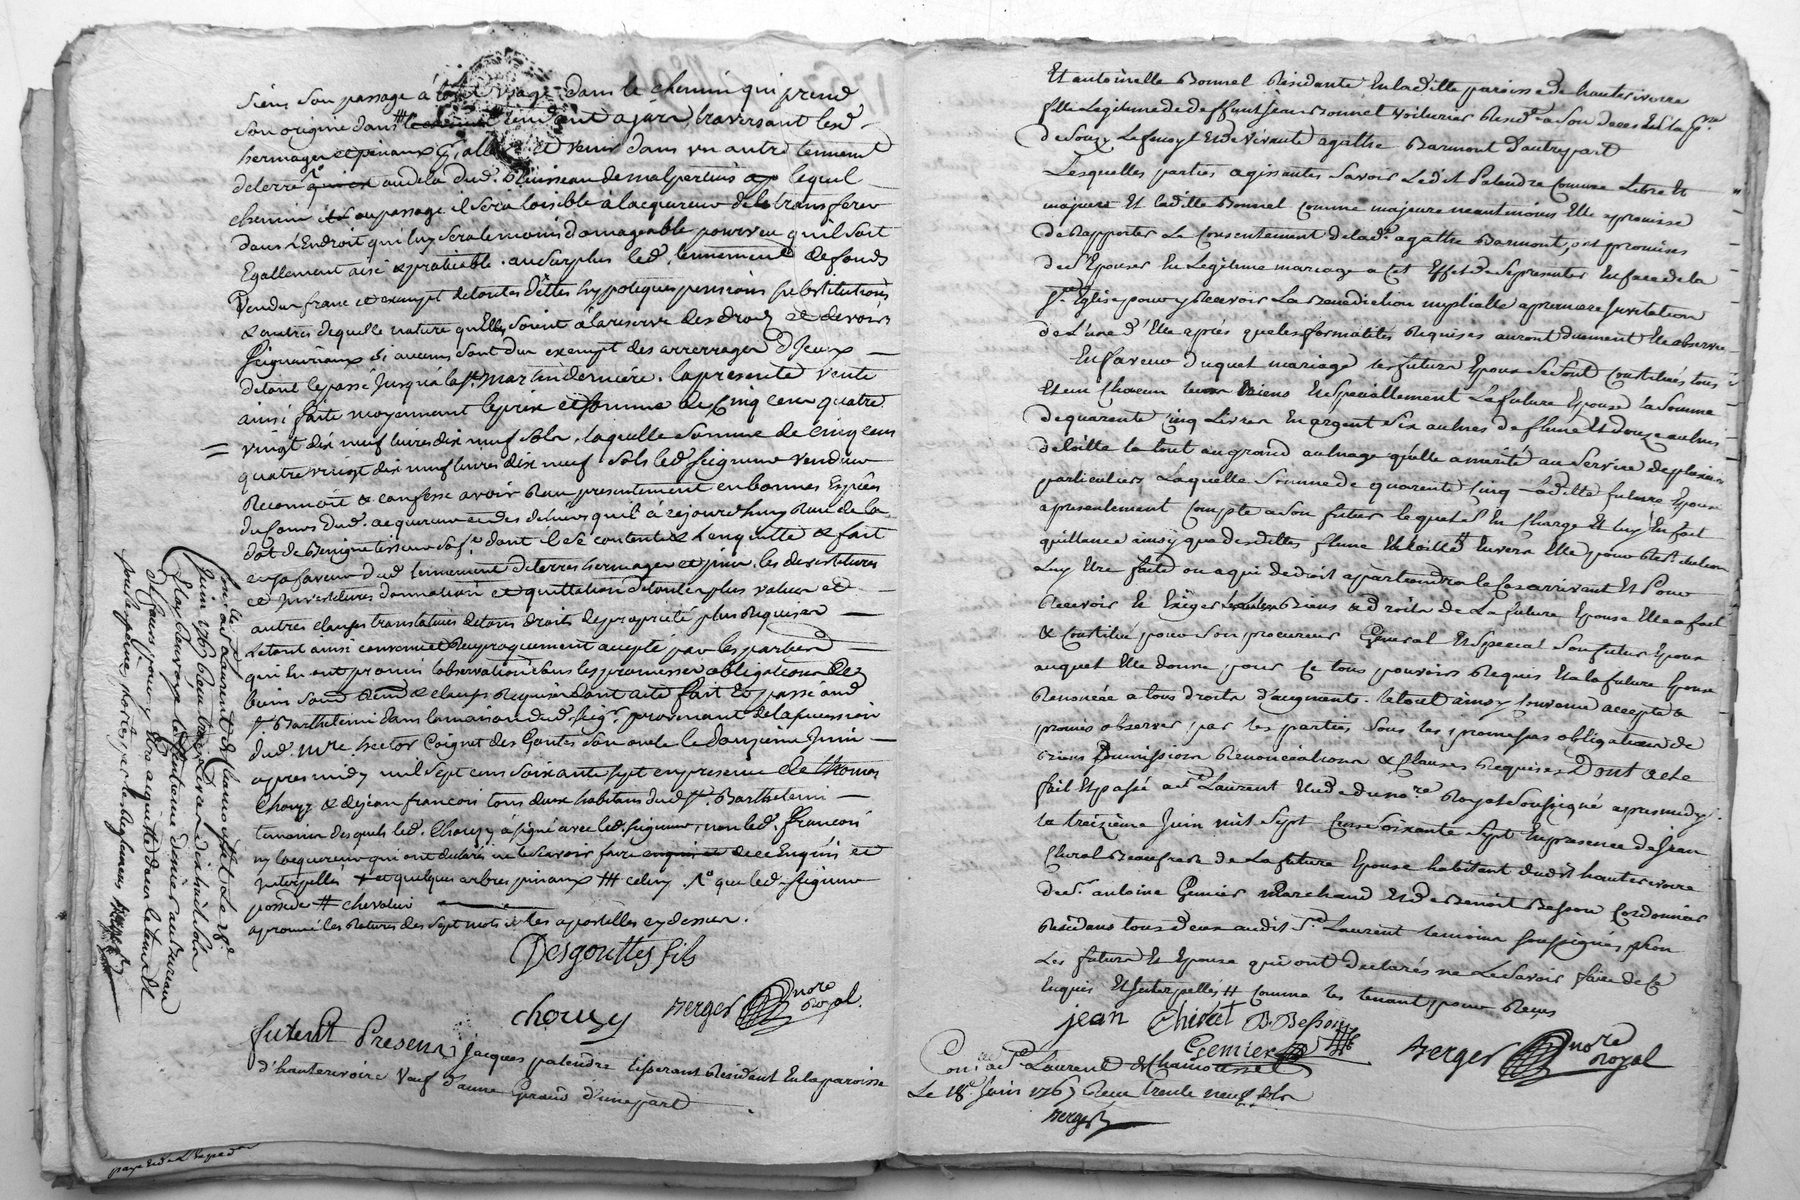 siens son passage à tout usage dans le chemin qui prend
son origine dans tendant a jara traversant lesd.
hermages et pinaux allé et venir dans un autre tenement
de terre audela dud. Ruisseau de malpertuis lequel
chemin passage il sera loisible à lacquereur de transferer
dans l'Endroit qui luy sera le moins domageable pourveu qu'il soit
Egallement aisé & pratiquable. au surplus led. tennement de fonds
Vendu franc et exempt de toutes dettes hypoteques pensions substitutions
& autres de quelle nature qu'Elles soient à la reserve des droits et devoirs
seigneuriaux si aucuns sont dus exempt des arrerrages d'Iceux
de tout le passé jusqu'a la st. Martin derniére. la presente vente
ainsi faite moyennant le prix et somme de Cinq cens quatre
vingt dix neuf livres dix neuf sols, laquelle somme de cinq cens
quatre vingt dix neuf livres dix neuf sols led. seigneur vendeur
Reconnoit & confesse avoir Reçu presentement en bonnes Espèces
du Cours dud. acquereur et des deniers qu'il à cejourd'huy Reçu de la
dot de Benigne tisseur sa fe. dont il se contente & l'en quitte & fait
en sa faveur dud. tennement de terres hermages et pinea. les devestitures
et Investitures donnation et quittation de toutes plus values et
autres clauses translatives de tous droits de proprieté plus Requises
le tout ainsi convenu et Reciproquement accepté par les parties
qui En ont promis l'observation sous les promesses obligations de
biens & clauses Requises dont acte fait Et passé aud.
st. Barthelemi dans la maison dud. seigr. provenant de la succession
dud. mre hector Coignet des Gouttes son oncle le douzieme Juin
apres midy mil sept cens soixante sept en presence de thomas
Chouzy & de jean francois tous deux habitans dud. st. Barthelemi
temoins desquels led. Chouzy à signé avec led. seigneur, non led. francois
ny lacquereur qui ont declarés ne le sçavoir faire de ce Enquis et
Interpellés et quelques arbres pinaux celuy que led. seigneur
possede chevalier
aprouvé les Ratures des sept mots & les apostilles cy dessus.
Desgouttes fils
chouzy Berger nore Royal.
Con.lé ad St Laurent de chamousset le 18e
Juin 1767 Reçu livres dix huit sols
Et ay Renvoyé le centieme denier au bureau
pour y être acquitté dans le tems Et
sous les peines portées par les Reglemens Berger
Furent Presens Jacques palendre tisserant Residant En la paroisse
d'hauterivoire veuf d'anne Giraud d'une part
Et antoinette Bonnel Residante En laditte paroisse de hauterivoire
fille Legitime de deffunt Jean Bonnel voiturier Residt. a son deces En la pss.
de Souzy Et de vivante agathe Barmont d'autre part
Lesquelles parties agissantes savoir Ledit Palendre Comme Libre Et
majeur Et laditte Bonnel comme majeure neantmoins Elle a promise
de Rapporter Le Consentement de lade. agathe Barmont, ont promises
de s'Epouser En Legitime mariage a Cet Effet de se presenter En face de la
ste. Eglise pour y Recevoir La Benediction nuptialle a premiere Invitation
de L'une d'Elle aprés que les formalités Requises auront duement Eté observées
En faveur duquel mariage les futurs Epoux se sont Constitués tous
Et un Chacun leurs Biens Et specialement La future Epouse la Somme
de quarente Cinq Livres En argent six aulnes de flene Et douze aulnes
de toille le tout au grand aulnage qu'elle a merité au service de plusieurs
particuliers Laquelle somme de quarente Cinq laditte future Epouse
a presentement Compté a son futur lequel s'En charge Et luy En fait
quittance ainsy que desdittes flene Et toille Envers Elle pour Restitution
Luy Etre faite ou a qui de droit apartiendra le Cas arrivant Et Pour
Recevoir Et Exiger Biens & droits de La future Epouse Elle a fait
& Constitué pour son procureur General Et special son futur Epoux
auquel Elle donne pour Ce tous pouvoirs Requis Et la future Epouse
Renoncée a tous droits d'augments. le tout ainsy Convenu accepté &
promis observer par les parties Sous les promesses obligations de
Biens soumissions Renonciations & Clauses Requises Dont acte
fait Et passé a st. Laurent Etude du nore. Royal soussigné apres medy
le treizième Juin mil sept Cens soixante sept En presence de Jean
Chirat Beaufrere de La future Epouse habitant dudit hauterivoire
de sr. antoine Gemier marchand Et de Benoit Besson Cordonnier
Residans tous deux audit st. Laurent temoins soussignés non
Les futurs Et Epouse qui ont declarés ne Le savoir faire de Ce
Enquis Et Interpellés Comme les tenant pour Reçus
jean Chirat B. Besson
Gemier Berger nore Royal
Con.lé ad St Laurent de Chamousset
Le 18e Juin 1767 Reçu trente neuf sols
Berger